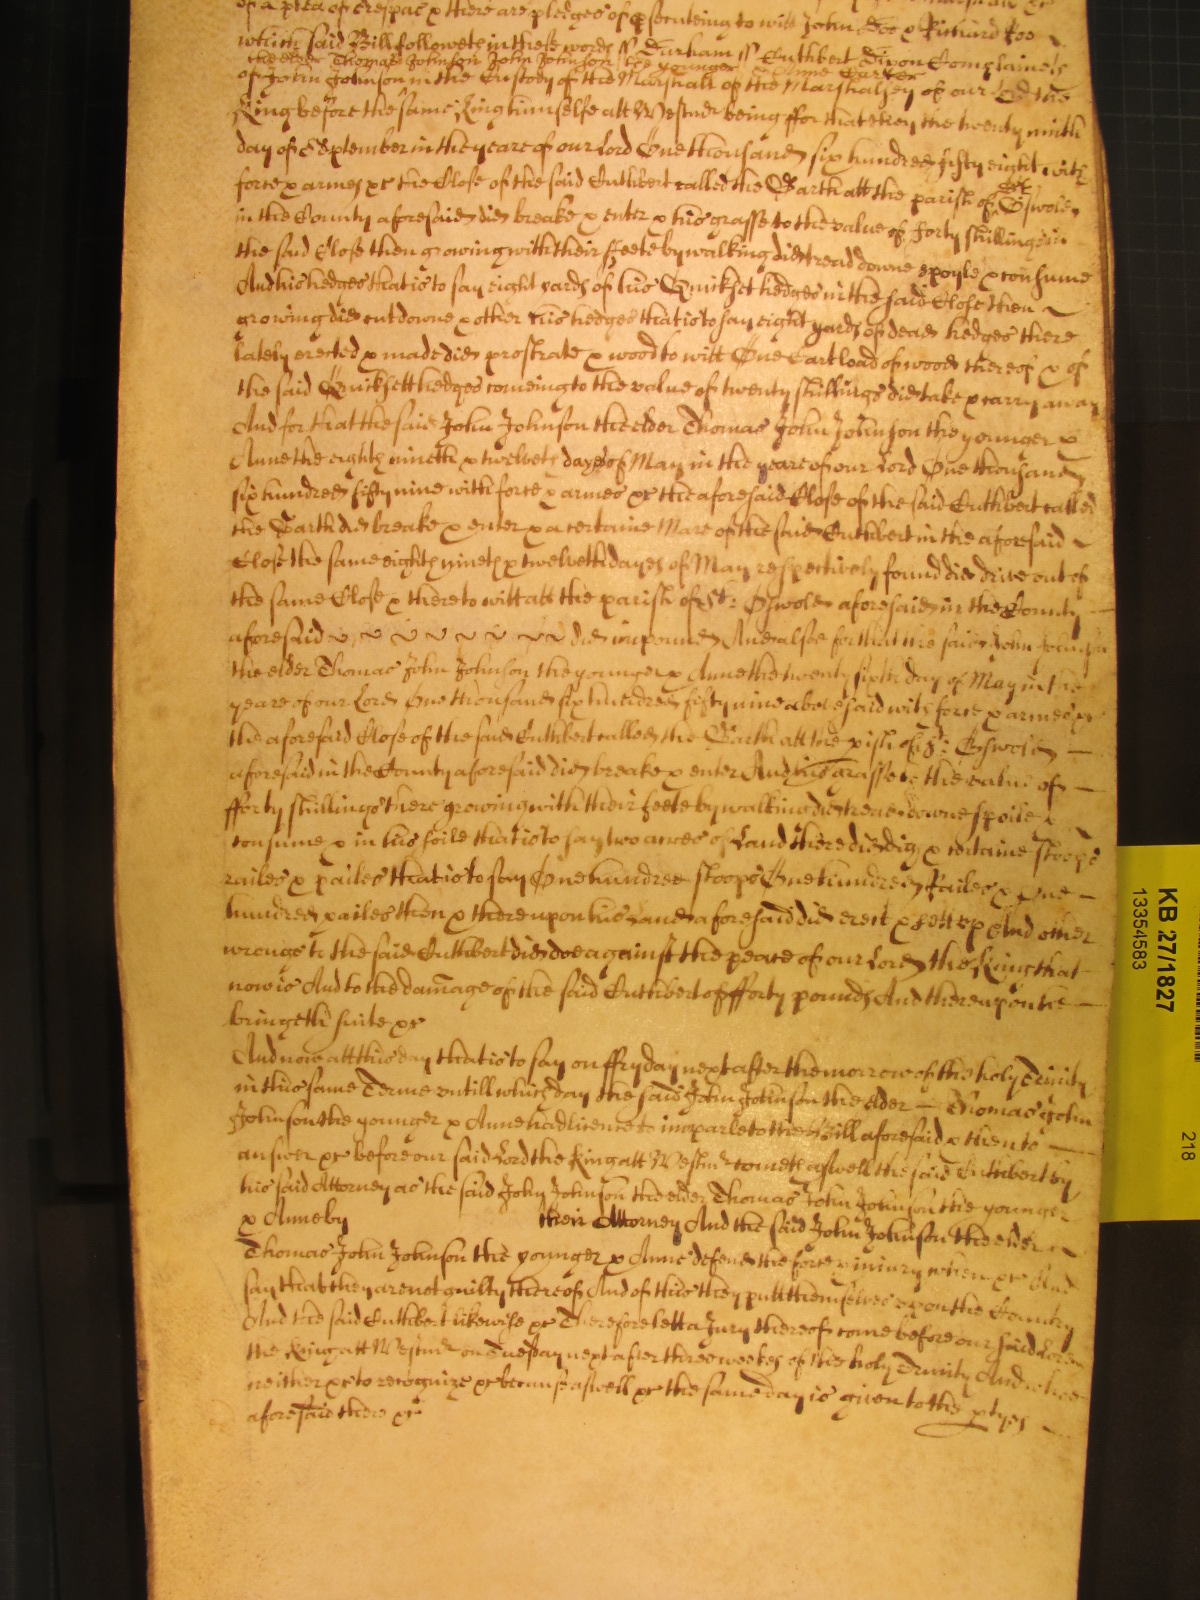 of a plea of trespas & there are pledges of psecuteing to witt John Doe & Richard Roe
which said Bill followeth in these words ss Durham ss Cuthbert Dixon Complaineth
the elder Thomas Johnson John Johnson the younger & Anne
of John Johnson in the Custody of the Marshall of the Marshalsey of our Lord the
King before the same King himselfe att Westmr being ffor that they the twenty ninth
day of September in the yeare of our Lord One thousand six hundred fifty eight with
force & armes &c the Close of the said Cuthbert called the Garth att the parish of St Oswold
in the County aforesaid did breake & enter & his grasse to the value of forty shillings in
the said Close then growing with their ffeete by walking did tread downe spoyle & consume
And his hedges that is to say eight yards of his Quicksett hedges in the said Close then
growing did cutt downe & other his hedges that is to say eight yards of dead hedges there
lately erected & made did prostrate & wood to witt One Cart load of wood thereof & of
the said Quicksett hedges comeing to the value of twenty shillings did take & carry away
And for that the said John Johnson the elder Thomas John Johnson the younger &
Anne the eighth nineth & twelveth dayes of May in the yeare of our Lord One thousand
six hundred fifty nine with force & armes &c the aforesaid Close of the said Cuthbert called
the Garth did breake & enter & a certaine Mare of the said Cuthbert in the aforesaid
Close the same eighth nineth & twelveth dayes of May respectively found did drive out of
the same Close & there to witt att the parish of St: Oswold aforesaid in the County
aforesaid did impound And alsoe for that the said John Johnson
the elder Thomas John Johnson the younger & Anne the twenty sixth day of May in the
yeare of our Lord One thousand six hundred fifty nine abovesaid with force & armes &c
the aforesaid Close of the said Cuthbert called the Garth att the pish of St: Oswold
aforesaid in the County aforesaid did breake & enter And his grasse to the value of
fforty shillings there growing with their feete by walking did tread downe spoile &
consume & in his soile that is to say two acres of Land there did digg & certaine stoops
railes & pailes that is to say One hundred stoops One hundred Railes & One
hundred pailes then & there upon his Land aforesaid did erect & sett up And other
wrongs to the said Cuthbert did doe against the peace of our Lord the King that
now is And to the damage of the said Cuthbert of fforty pounds And thereupon he
bringeth suite &c
And now att this day that is to say on ffryday next after the morrow of the holy Trinity
in this same Terme untill which day the said John Johnson the elder Thomas John
Johnson the younger & Anne had licence to imparle to the Bill aforesaid & then to
answer &c before our said Lord the King att Westmr cometh aswell the said Cuthbert by
his said Attorney as the said John Johnson the elder Thomas John Johnson the younger
& Anne by their Attorney And the said John Johnson the elder
Thomas John Johnson the younger & Anne defend the force & injury when &c And
say that they are not guilty thereof And of this they putt themselves upon the Country
And the said Cuthbert likewise &c Therefore lett a Jury thereof come before our said Lord
the King att Westmr on Tuesday next after three weekes of the holy Trinity And who
neither &c to recognize &c because aswell &c the same day is given to the ptyes
aforesaid there &c
KB 27/1827
13354583
218